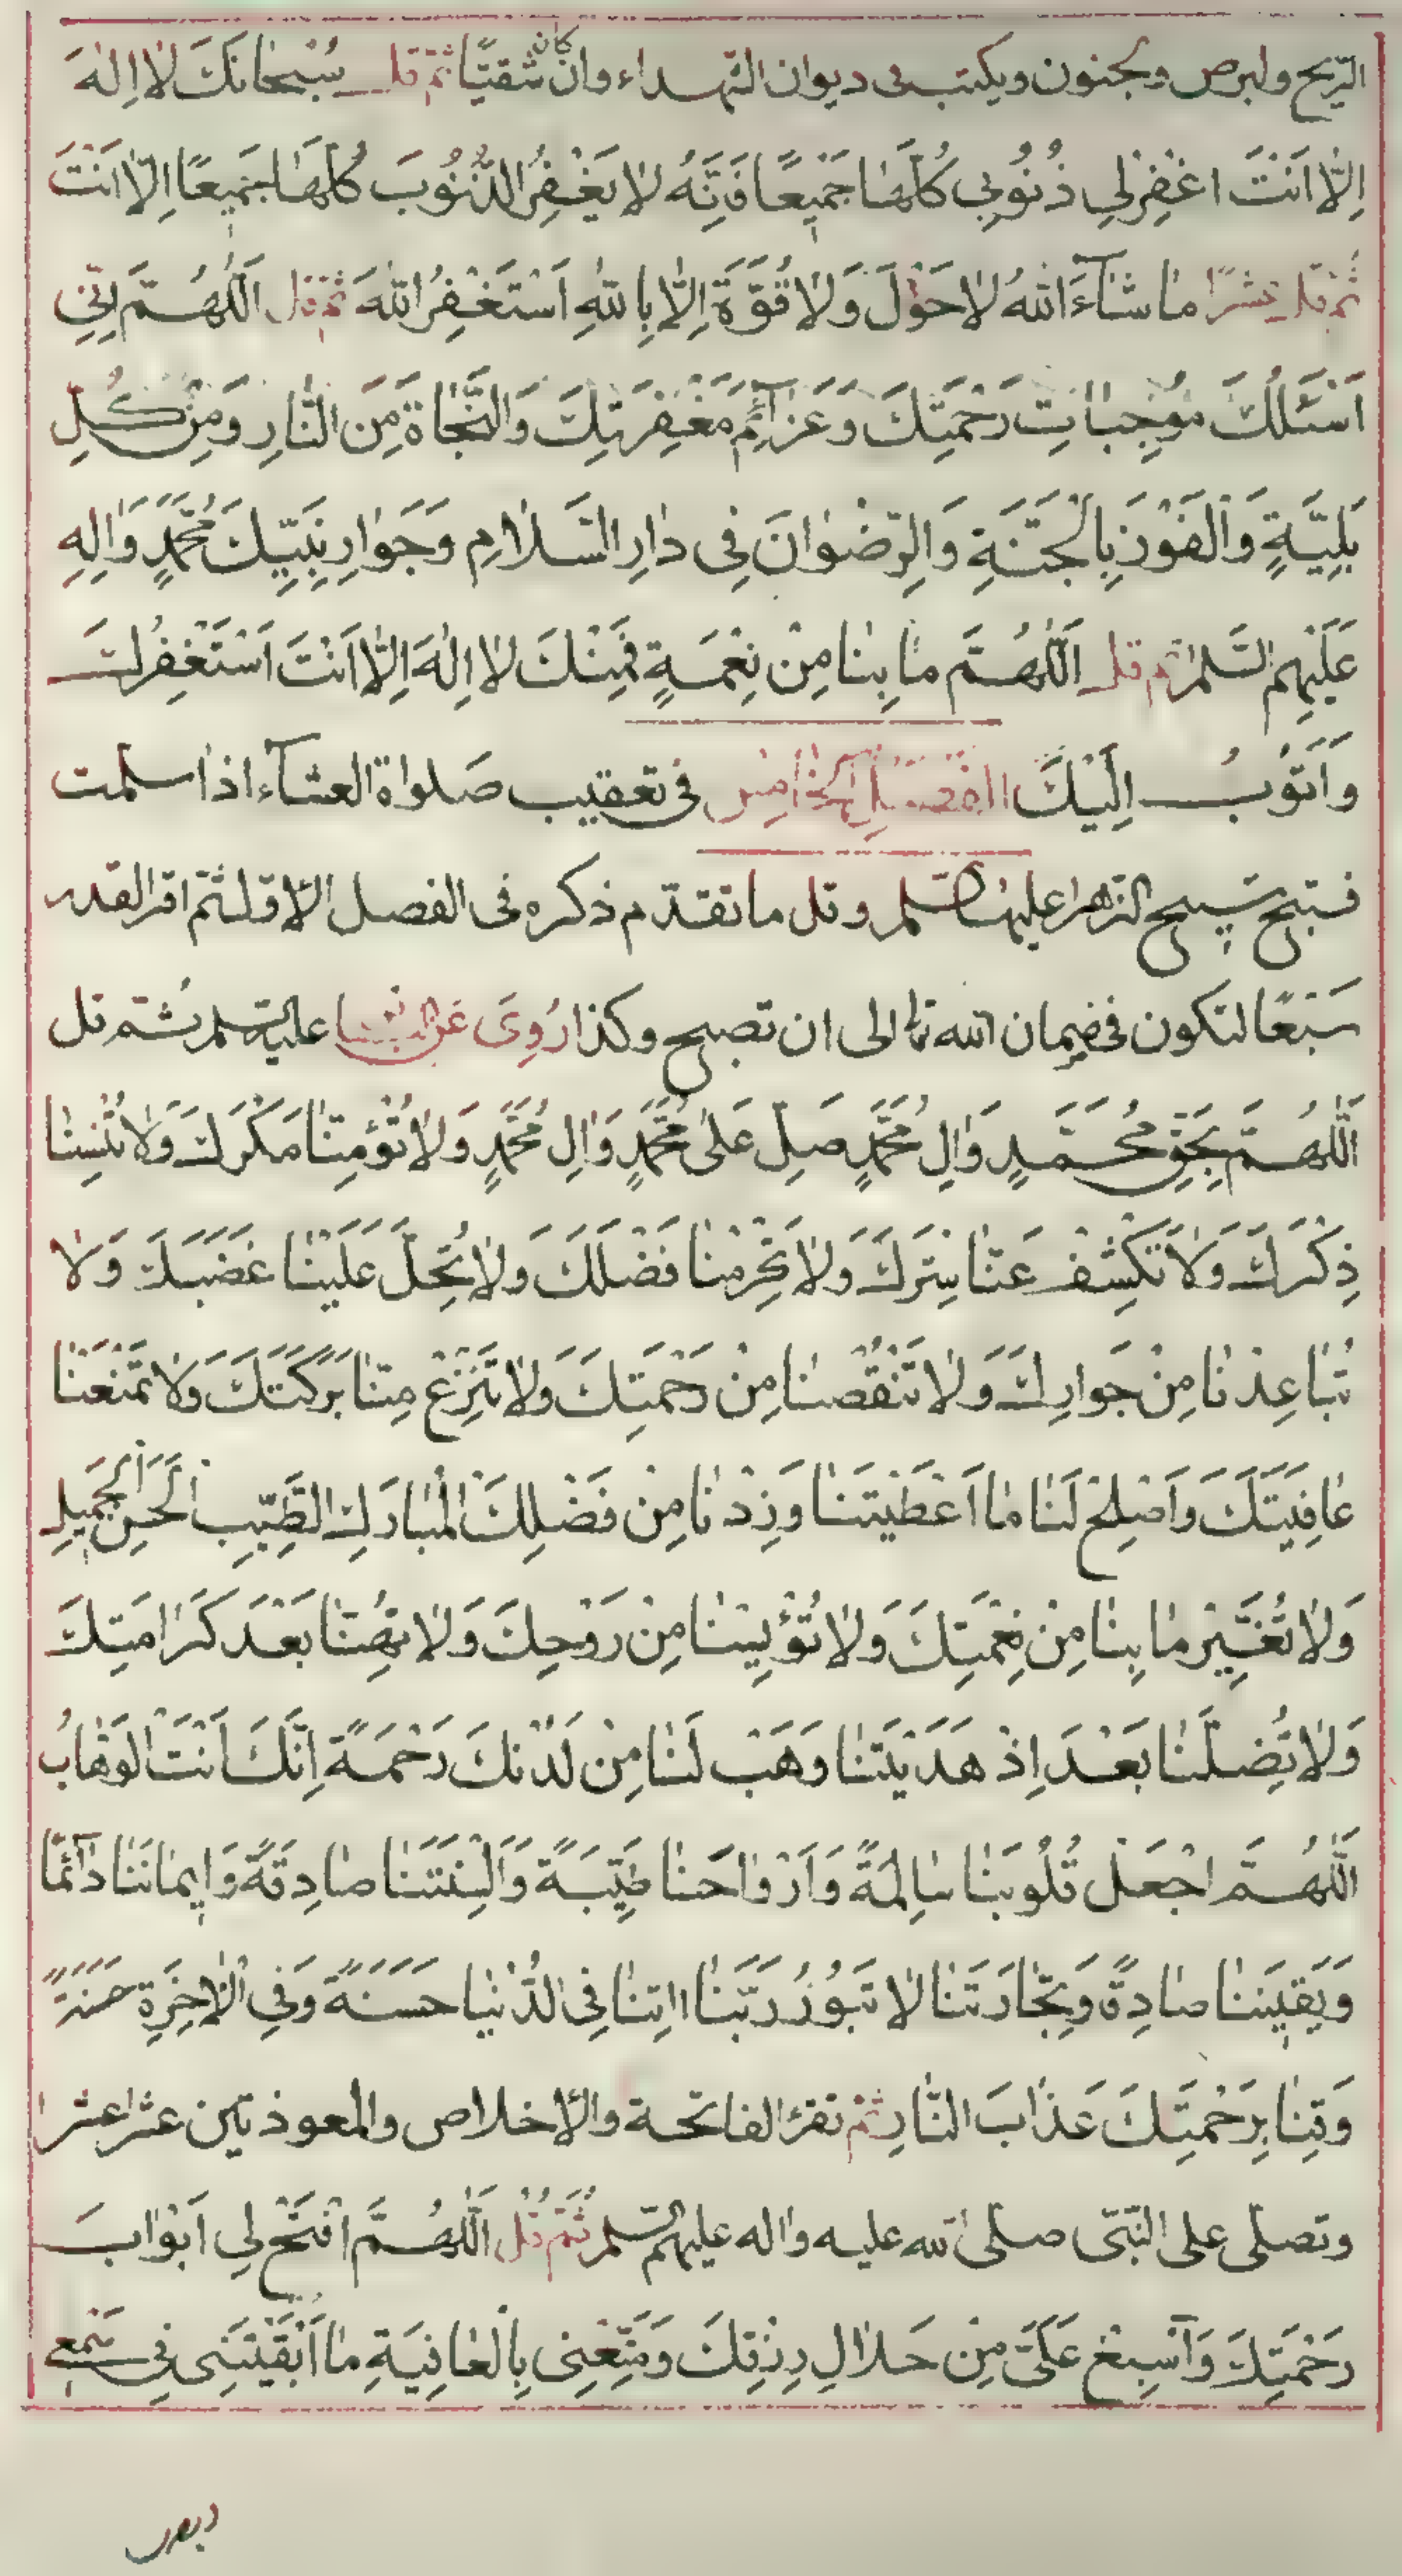 الريح ولبرص وجنون ويكتب فى ديوان الشهداء وان كان شقيّا ثمّ قل سُبْحانَكَ لا اِلهَ
اِلّا اَنْتَ اغْفِرْلِي ذُنُوبِي كُلَّهٰا جَمِيعًا فَاِنَّهُ لا يَغْفِرُ الذُّنُوبَ كُلَّهٰا جَمِيعًا اِلّا اَنْتَ
ثم قل عشرًا مٰا شٰآءَ اللهُ لا حَوْلَ وَلا قُوَّةَ اِلّا بِاللهِ اَسْتَغْفِرُ اللهَ ثم قل اَللّهُمَّ اِنّي
اَسْئَلُكَ مُوجِبٰاتِ رَحْمَتِكَ وَعَزٰائِمَ مَغْفِرَتِكَ وَالنَّجٰاةَ مِنَ النّٰارِ وَمِنْ كُلِّ
بَلِيَّةٍ وَالْفَوْزَ بِالْجَنَّةِ وَالرِّضْوٰانَ فِى دٰارِ السَّلٰامِ وَجَوٰارِ نَبِيِّكَ مُحَمَّدٍ وَاٰلِهِ
عَلَيْهِمُ السَّلم ثم قل اَللّهُمَّ مٰا بِنٰا مِنْ نِعْمَةٍ فَمِنْكَ لا اِلٰهَ اِلّا اَنْتَ اَسْتَغْفِرُكَ
وَاَتُوبُ اِلَيْكَ الفصل الخامس فى تعقيب صلواة العشآء اذا سلمت
فسبّح تسبيح الزهرا عليها السلم وقل ما تقدّم ذكره فى الفصل الاوّل ثمّ اقر القدر
سَبْعًا لتكون فى ضمان الله تعا الى ان تصبح وكذا رُوِىَ عَنِ عليه السلم ثمّ قل
اَللّهُمَّ بِحَقِّ مُحَمَّدٍ وَاٰلِ مُحَمَّدٍ صَلِّ عَلىٰ مُحَمَّدٍ وَاٰلِ مُحَمَّدٍ وَلٰا تُؤْمِنّٰا مَكْرَكَ وَلٰا تُنْسِنٰا
ذِكْرَكَ وَلٰا تَكْشِفْ عَنّٰا سِتْرَكَ وَلٰا تَحْرِمْنٰا فَضْلَكَ وَلٰا تُحِلَّ عَلَيْنٰا غَضَبَكَ وَلٰا
تُبٰاعِدْنٰا مِنْ جَوارِكَ وَلٰا تَنْقُصْنٰا مِنْ رَحْمَتِكَ وَلٰا تَنْزِعْ مِنّٰا بَرَكَتَكَ وَلٰا تَمْنَعْنٰا
عٰافِيَتَكَ وَاَصْلِحْ لَنٰا مٰا اَعْطَيْتَنٰا وَزِدْنٰا مِنْ فَضْلِكَ الْمُبٰارَكِ الطَّيِّبِ الْحَسَنِ الْجَمِيلِ
وَلٰا تُغَيِّرْ مٰا بِنٰا مِنْ نِعْمَتِكَ وَلٰا تُؤْيِسْنٰا مِنْ رَوْحِكَ وَلٰا تُهِنّٰا بَعْدَ كَرٰامَتِكَ
وَلٰا تُضِلَّنٰا بَعْدَ اِذْ هَدَيْتَنٰا وَهَبْ لَنٰا مِنْ لَدُنْكَ رَحْمَةً اِنَّكَ اَنْتَ الْوَهّٰابُ
اَللّهُمَّ اجْعَلْ قُلُوبَنٰا سٰالِمَةً وَاَرْوٰاحَنٰا طَيِّبَةً وَاَلْسِنَتَنٰا صٰادِقَةً وَاِيمٰانَنٰا دٰآئِمًا
وَيَقِينَنٰا صٰادِقًا وَتِجٰارَتَنٰا لٰا تَبُورُ رَبَّنٰا اٰتِنٰا فِى الدُّنْيٰا حَسَنَةً وَفِى الْاٰخِرَةِ حَسَنَةً
وَقِنٰا بِرَحْمَتِكَ عَذٰابَ النّٰارِ ثم تقرَء الفاتحة والاخلاص والمعوذتين عشرا عشرا
وتصلّى على النّبىّ صلى الله عليه واله عليهم السلم ثُمَّ قُل اَللّهُمَّ افْتَحْ لِى اَبْوٰابَ
رَحْمَتِكَ وَاَسْبِغْ عَلَىَّ مِنْ حَلٰالِ رِزْقِكَ وَمَتِّعْنِى بِالْعٰافِيَةِ مٰا اَبْقَيْتَنِى فِى سَمْعِى
وبصرى